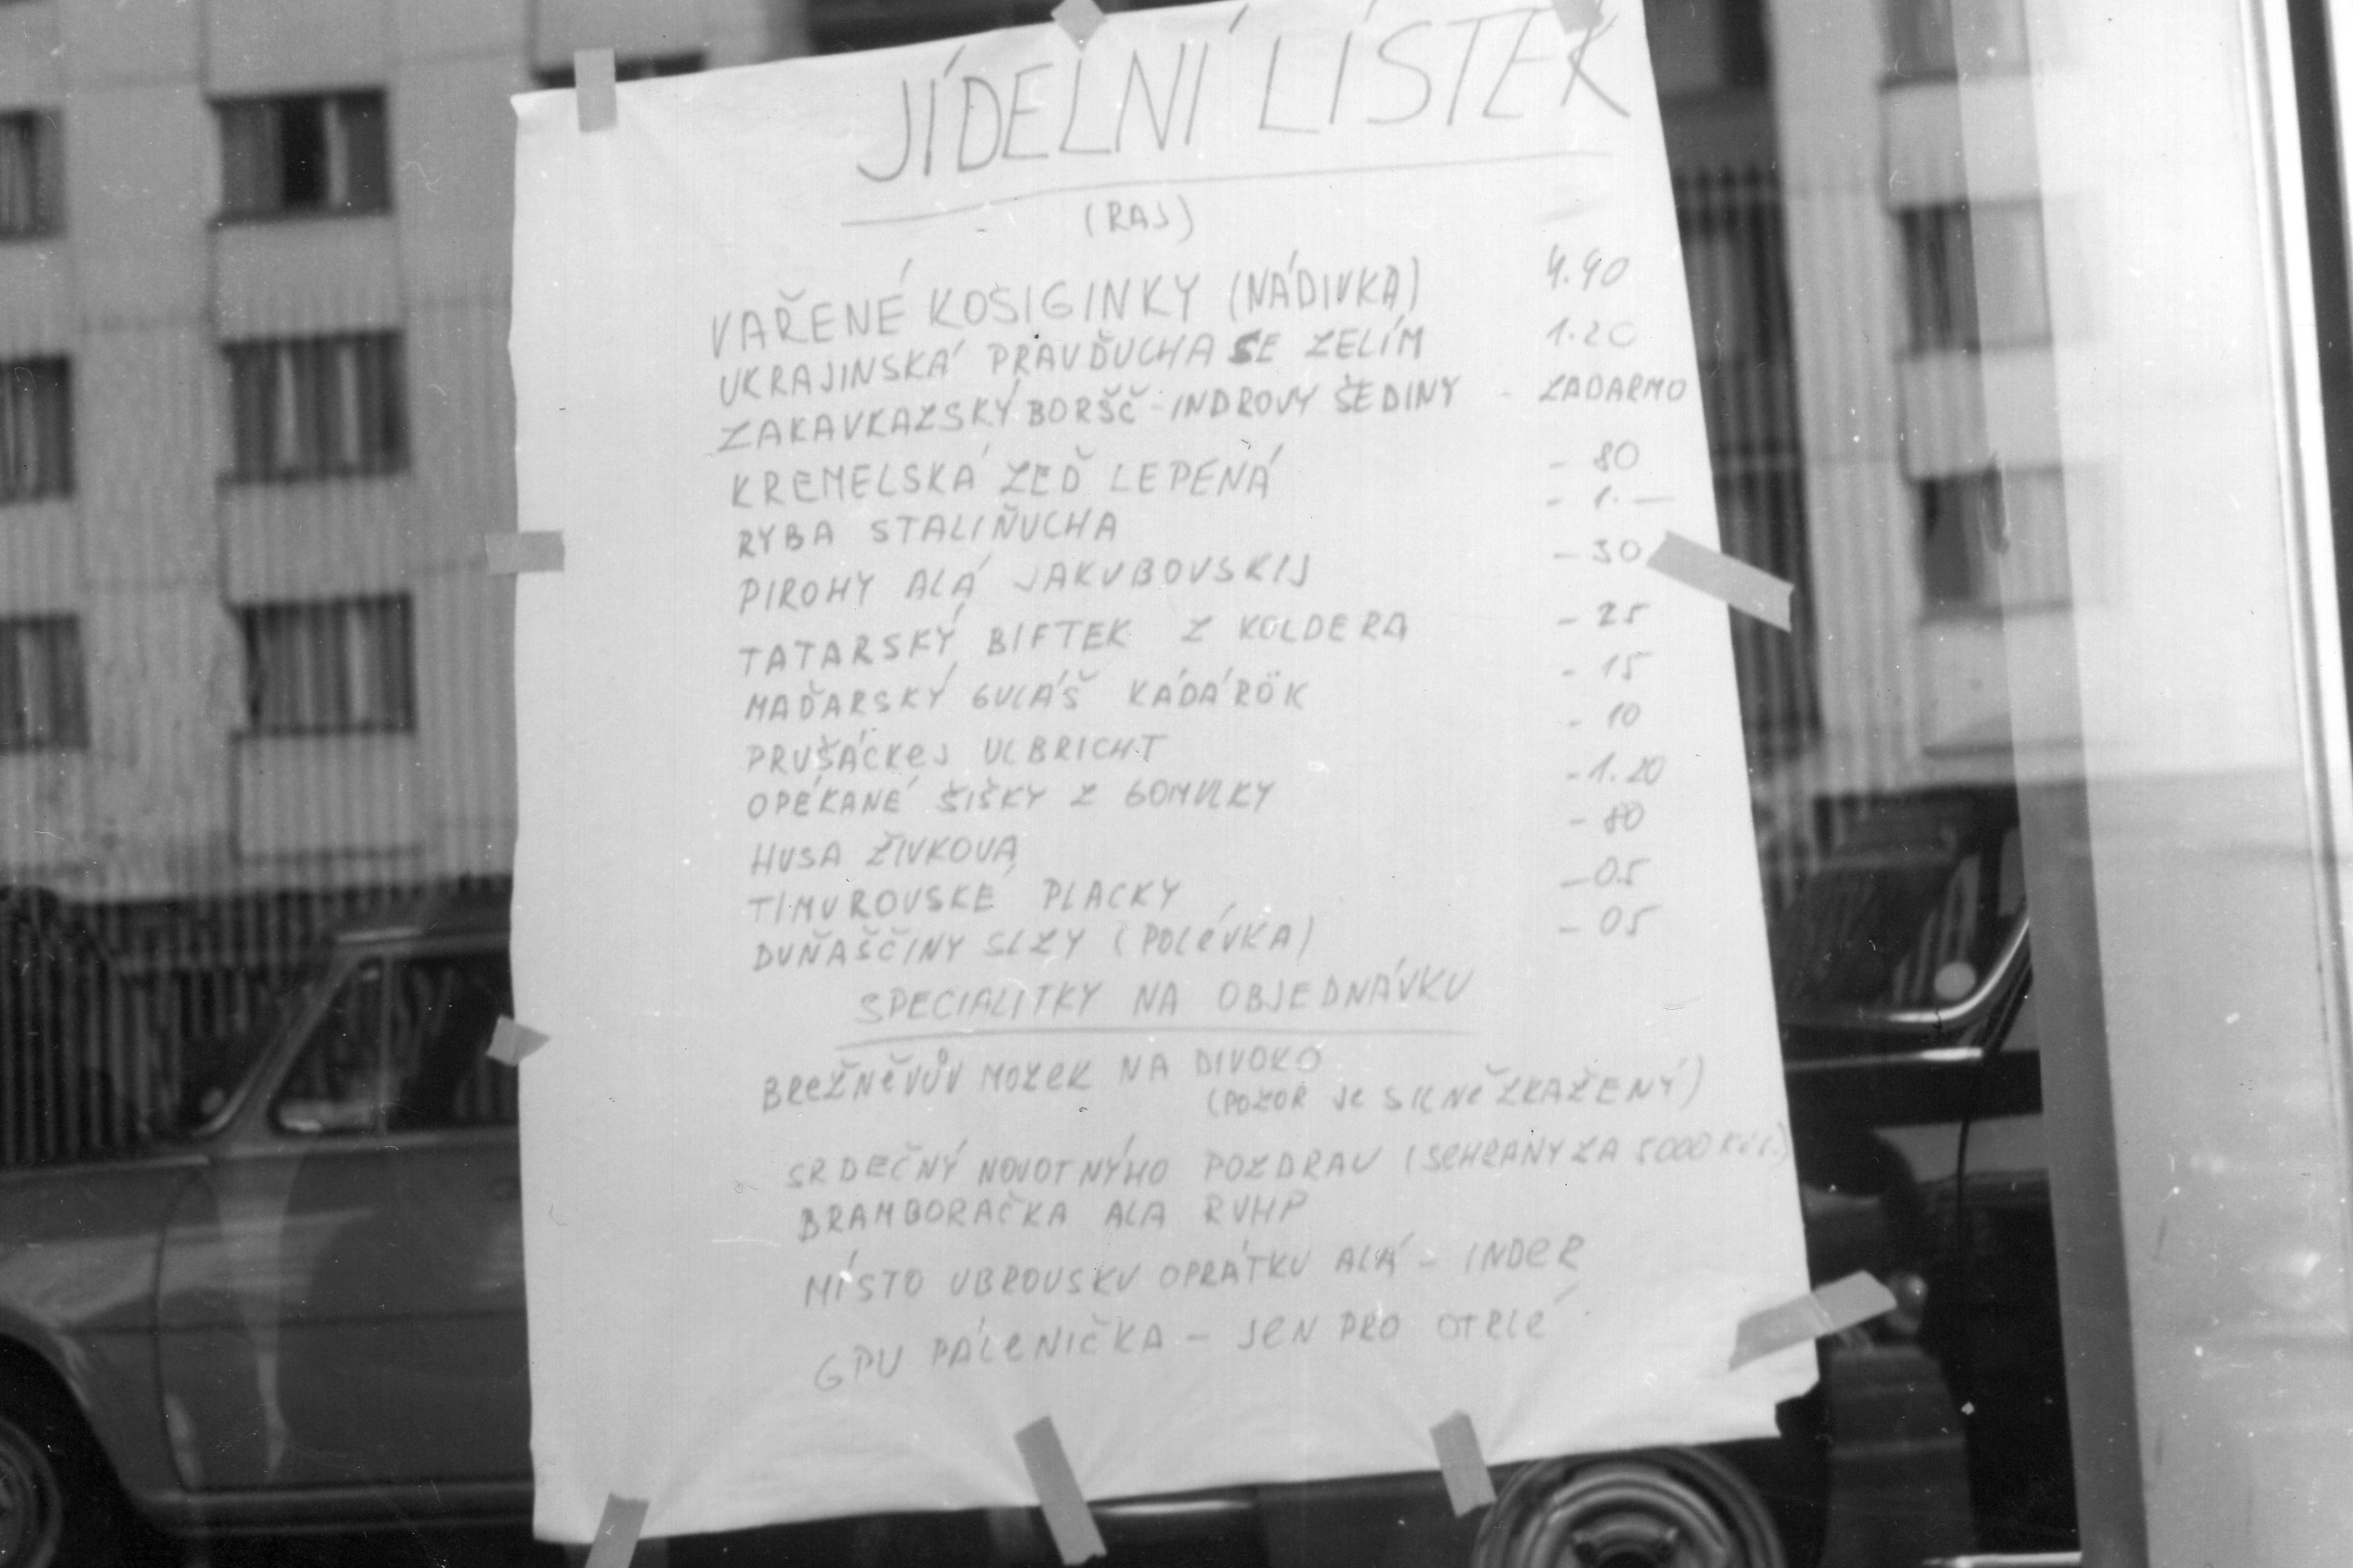 JÍDELNÍ LÍSTEK
(RAJ)
VAŘENÉ KOSIGINKY (NÁDIVKA) 4.40
UKRAJINSKÁ PRAVĎUCHA SE ZELÍM 1.20
ZAKAVKAZSKÝ BORŠČ - INDROVY ŠEDINY - ZADARMO
KREMELSKÁ ZEĎ LEPENÁ - 80
RYBA STALIŇUCHA - 1.—
PIROHY ALÁ JAKUBOVSKIJ - 30
TATARSKÝ BIFTEK Z KOLDERA - 25
MAĎARSKÝ GULÁŠ KÁDÁRÖK - 15
PRUŠÁCKEJ ULBRICHT - 10
OPÉKANÉ ŠIŠKY Z GOMULKY - 1.20
HUSA ŽIVKOVA - 80
TIMUROVSKÉ PLACKY - 05
DUŇAŠČINY SLZY (POLÉVKA) - 05
SPECIALITKY NA OBJEDNÁVKU
BREŽNĚVŮV MOZEK NA DIVOKO
(POZOR JE SILNĚ ZKAŽENÝ)
SRDEČNÝ NOVOTNÝHO POZDRAV (SEHRANÝ ZA 5000 KČS.)
BRAMBORAČKA ALA RVHP
MÍSTO UBROUSKU OPRÁTKU ALÁ - INDER
GPU PÁLENIČKA - JEN PRO OTRLÉ